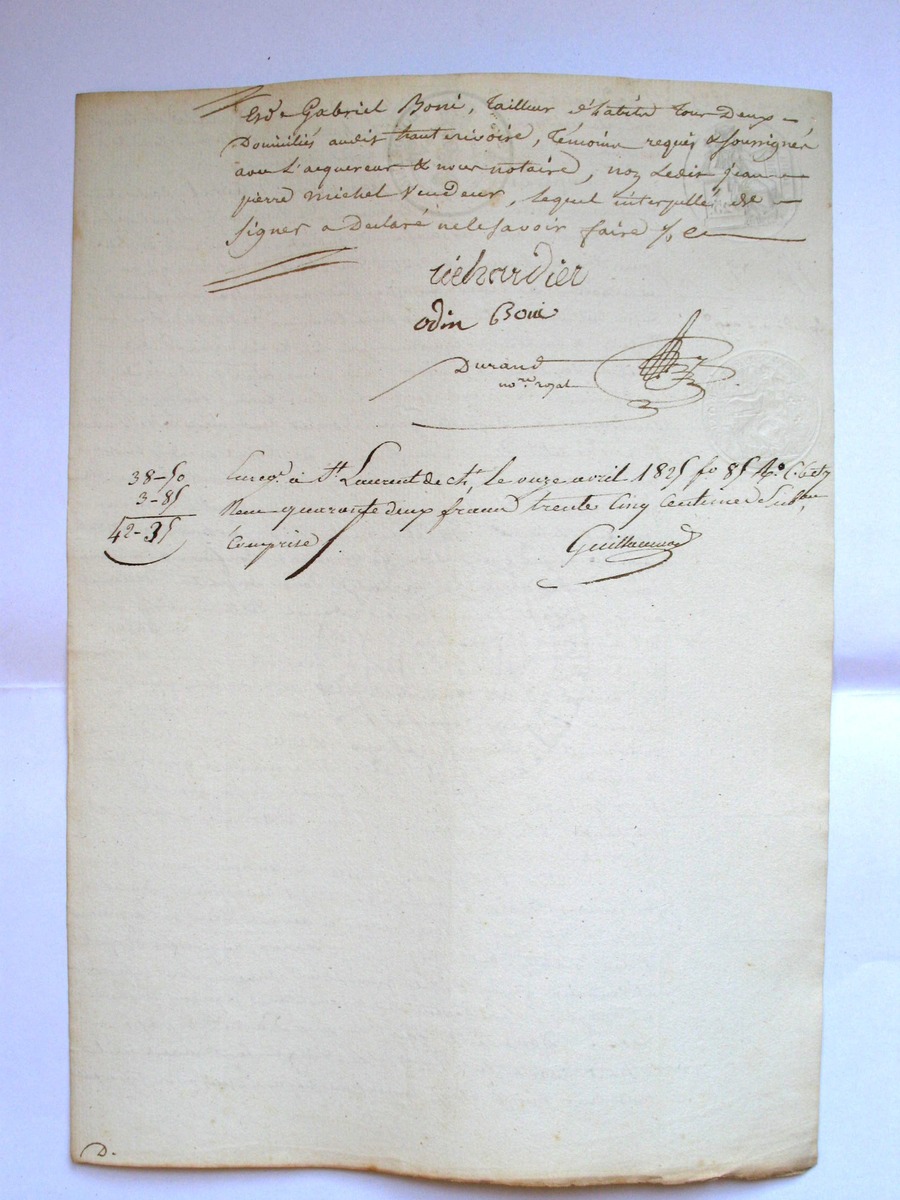 Gabriel Boni, tailleur d'habits tous Deux
Domiciliés audit hauterivoire, témoins requis & soussignés
avec L'acquereur & nous notaire, non Ledit jean
pierre michel Vendeur, lequel interpellé de
signer a Declaré ne le savoir faire
odin Boni
Durand
no.re royal
38-50
3-85
42-35
Enreg. à St Laurent de ch., le onze avril 1825 fo 85
Reçu quarante deux francs trente Cinq Centimes Subon
Comprise
D.